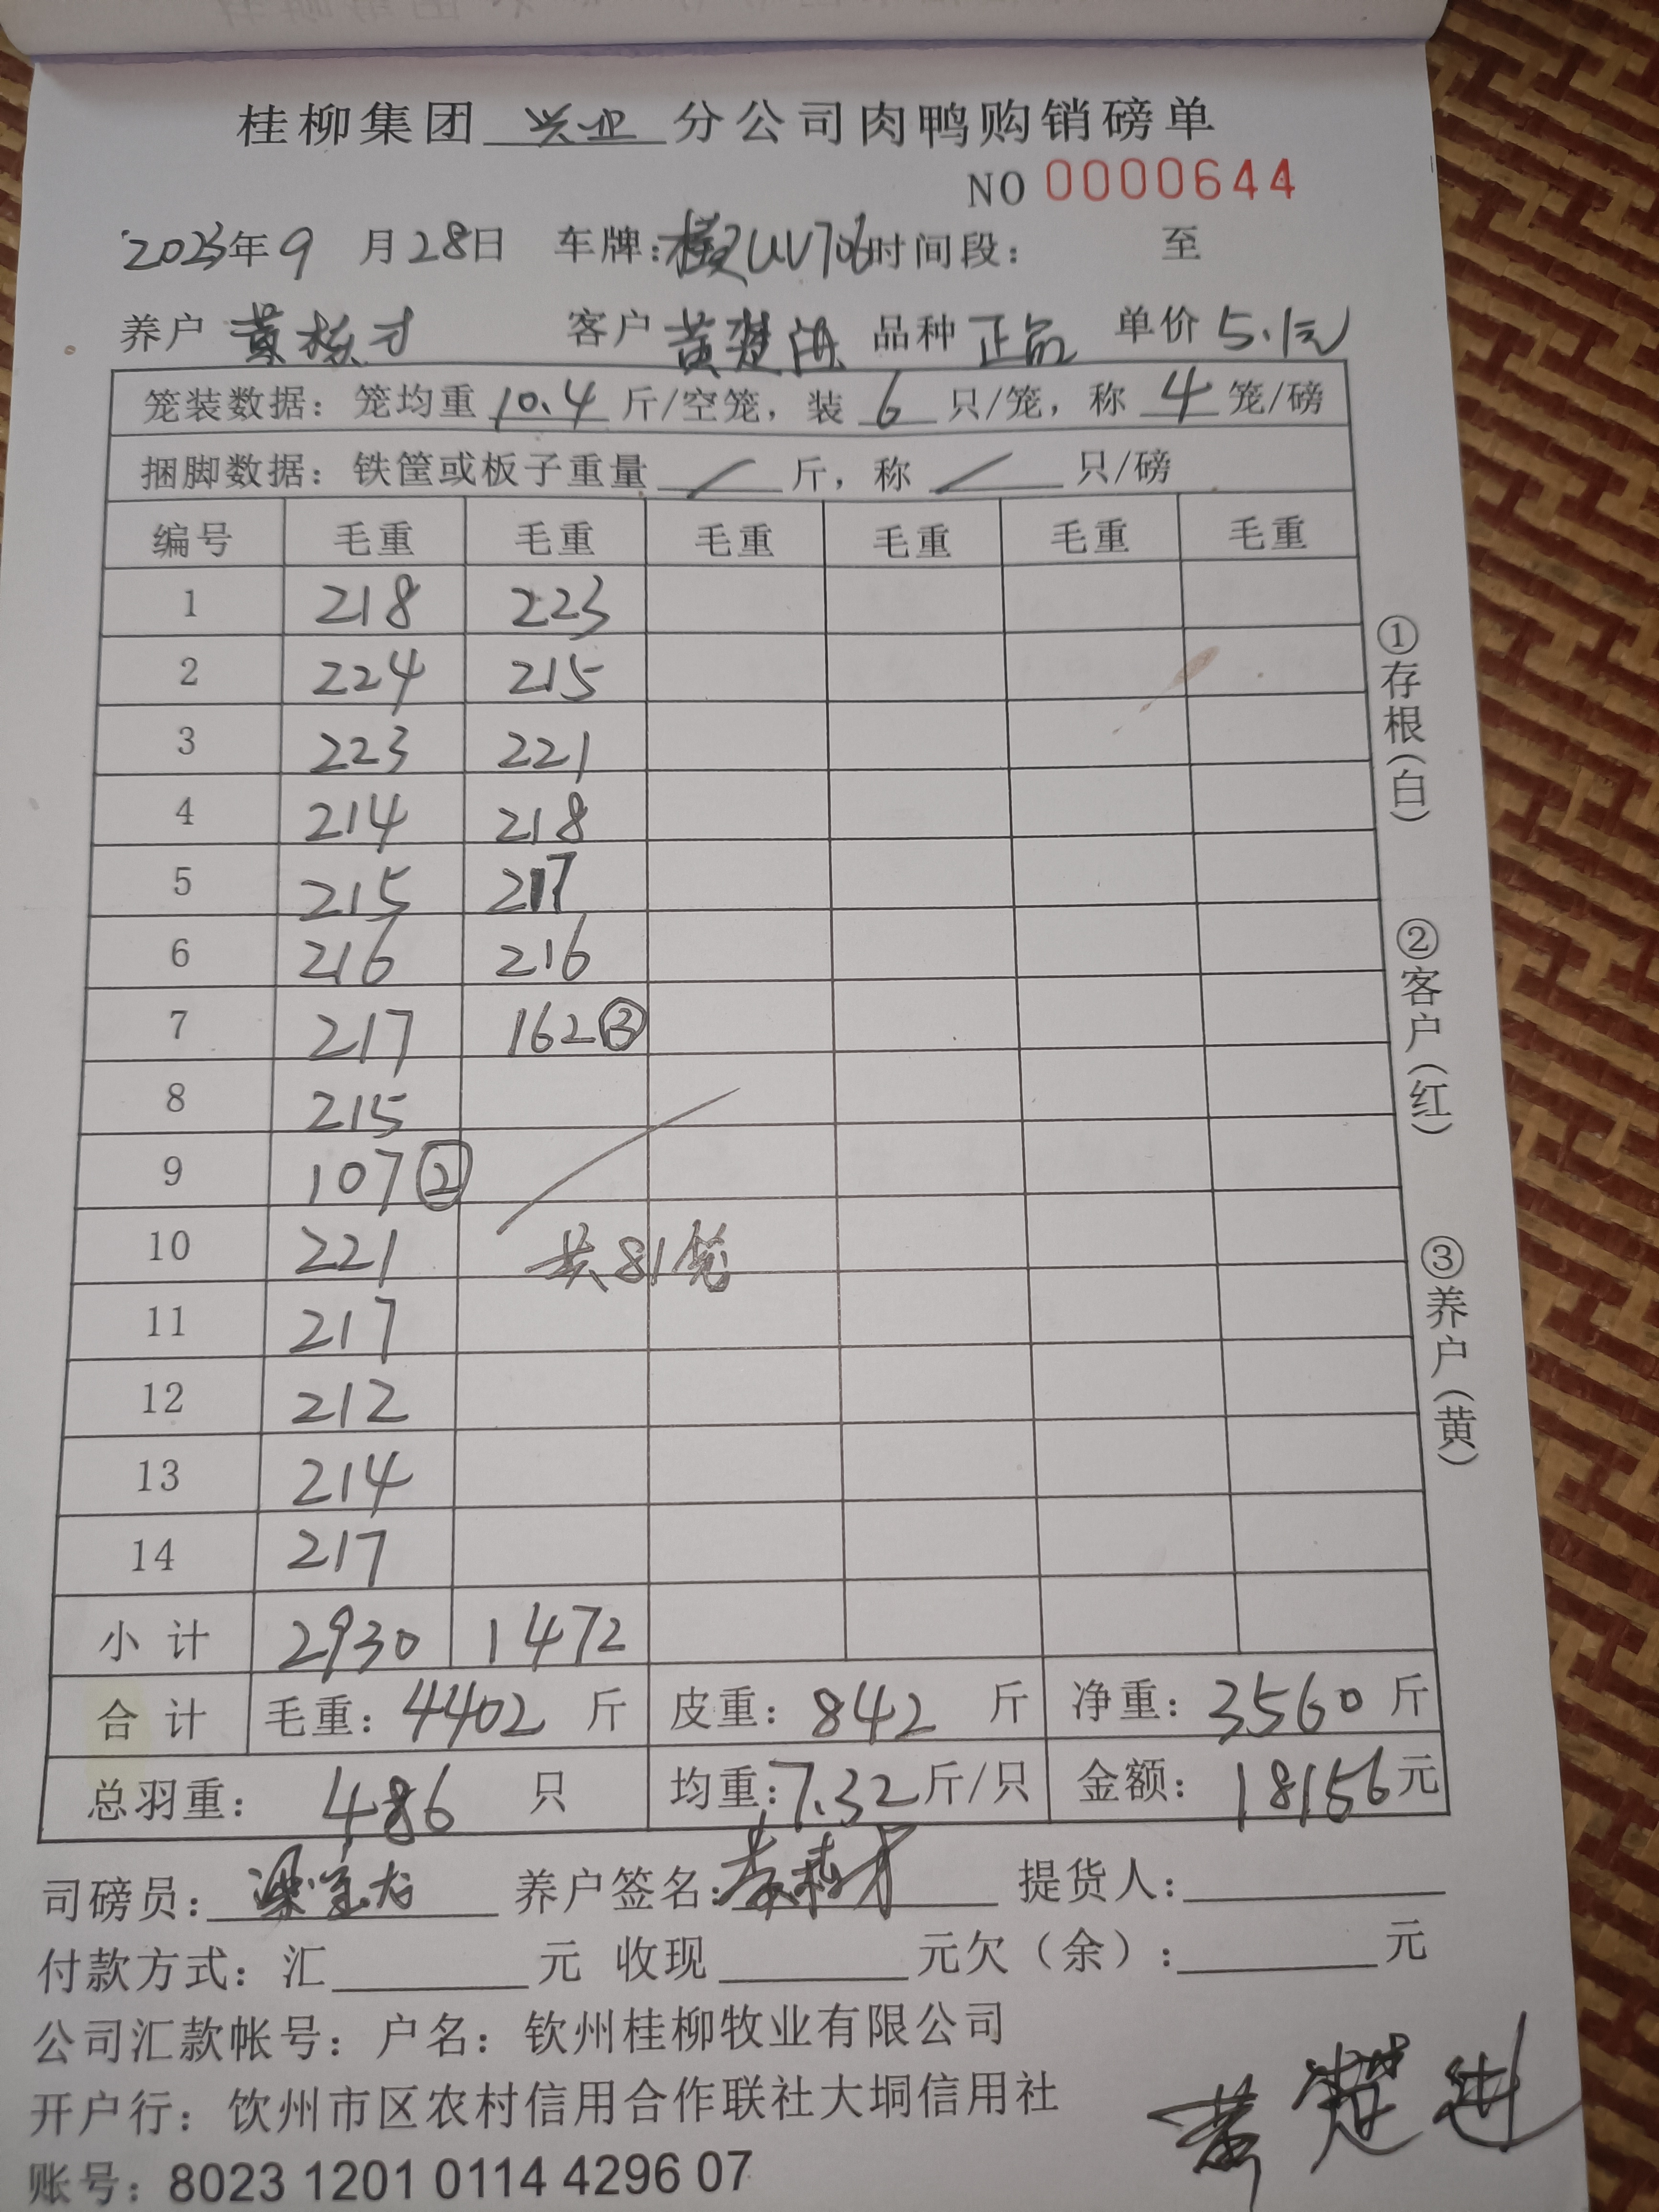 桂柳集团 兴业 分公司肉鸭购销磅单
NO 0000644
2023年9月28日 车牌: UV706 时间段: 至
养户 黄栋才 客户 黄楚 品种 正品 单价 5.1元
笼装数据: 笼均重 10.4 斤/空笼, 装 6 只/笼, 称 4 笼/磅
捆脚数据: 铁筐或板子重量 / 斤, 称 / 只/磅
编号 毛重 毛重 毛重 毛重 毛重 毛重
1 218 223
2 224 215
3 223 221
4 214 218
5 215 217
6 216 216
7 217 162③
8 215
9 107②
10 221 共81笼
11 217
12 212
13 214
14 217
小计 2930 1472
合计 毛重: 4402 斤 皮重: 842 斤 净重: 3560 斤
总羽重: 486 只 均重: 7.32 斤/只 金额: 18156元
司磅员: 梁 养户签名: 提货人:
付款方式: 汇 元 收现 元欠(余): 元
公司汇款帐号: 户名: 钦州桂柳牧业有限公司
开户行: 钦州市区农村信用合作联社大垌信用社
账号: 8023 1201 0114 4296 07
黄楚
①存根(白)
②客户(红)
③养户(黄)